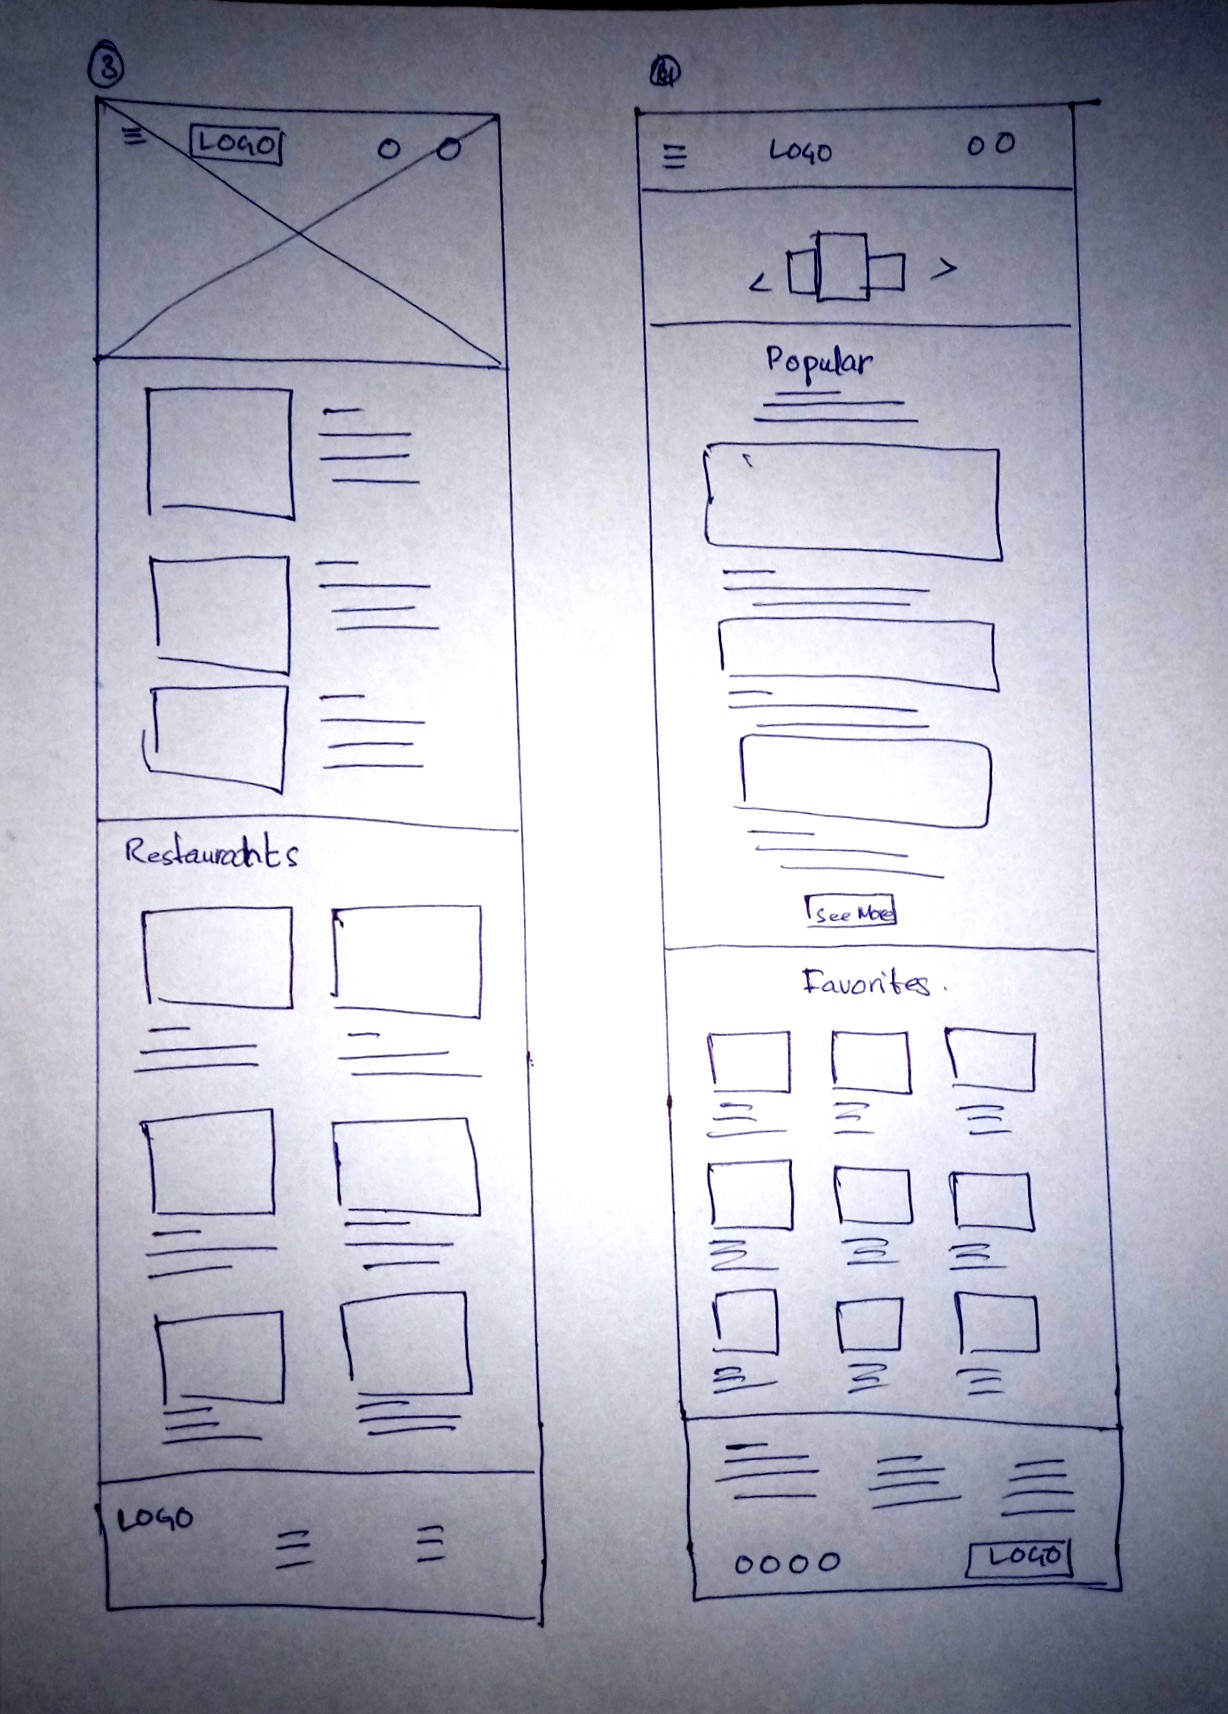 3
LOGO
Restaurants
LOGO
4
LOGO
< >
Popular
See More
Favorites.
LOGO